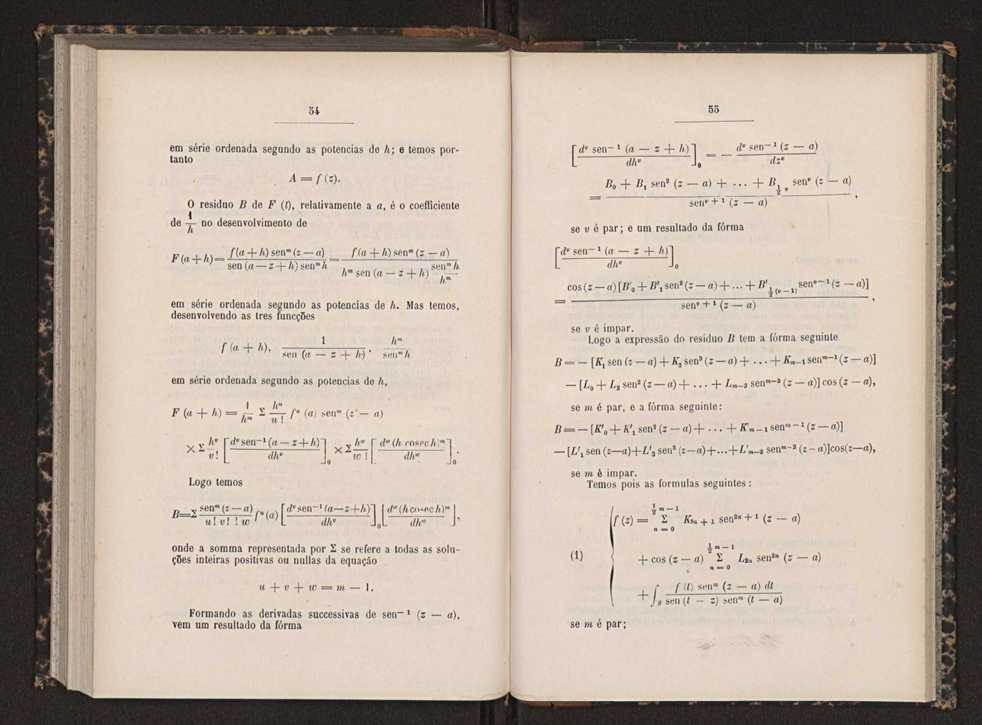 54
em série ordenada segundo as potencias de h; e temos por-
tanto
A = f (z).
O residuo B de F (t), relativamente a a, é o coefficiente
de 1/h no desenvolvimento de
F (a + h) = f (a + h) senᵐ (z — a) / sen (a — z + h) senᵐ h = f (a + h) senᵐ (z — a) / hᵐ sen (a — z + h) senᵐ h / hᵐ
em série ordenada segundo as potencias de h. Mas temos,
desenvolvendo as tres funcções
f (a + h), 1 / sen (a — z + h), hᵐ / senᵐ h
em série ordenada segundo as potencias de h,
F (a + h) = 1/hᵐ Σ hᵘ/u ! fᵘ (a) senᵐ (z — a)
× Σ hᵛ/v ! [dᵛ sen⁻¹ (a — z + h) / dhᵛ]₀ × Σ hʷ/w ! [dʷ (h cosec h)ᵐ / dhʷ]₀.
Logo temos
B = Σ senᵐ (z — a) / u ! v ! ! w fᵘ (a) [dᵛ sen⁻¹ (a — z + h) / dhᵛ]₀ [dʷ (h cosec h)ᵐ / dhʷ],
onde a somma representada por Σ se refere a todas as solu-
ções inteiras positivas ou nullas da equação
u + v + w = m — 1.
Formando as derivadas successivas de sen⁻¹ (z — a),
vem um resultado da fórma
55
[dᵛ sen⁻¹ (a — z + h) / dhᵛ]₀ = — dᵛ sen⁻¹ (z — a) / dzᵛ
= B₀ + B₁ sen² (z — a) + ... + B_{½ v} senᵛ (z — a) / senᵛ⁺¹ (z — a),
se v é par; e um resultado da fórma
[dᵛ sen⁻¹ (a — z + h) / dhᵛ]₀
= cos (z — a) [B′₀ + B′₁ sen² (z — a) + ... + B′_{½ (v — 1)} senᵛ⁻¹ (z — a)] / senᵛ⁺¹ (z — a),
se v é impar.
Logo a expressão do residuo B tem a fórma seguinte
B = — [K₁ sen (z — a) + K₃ sen³ (z — a) + ... + Kₘ₋₁ senᵐ⁻¹ (z — a)]
— [L₀ + L₂ sen² (z — a) + ... + Lₘ₋₂ senᵐ⁻² (z — a)] cos (z — a),
se m é par, e a fórma seguinte:
B = — [K′₀ + K′₁ sen² (z — a) + ... + K′ₘ₋₁ senᵐ⁻¹ (z — a)]
— [L′₁ sen (z — a) + L′₃ sen³ (z — a) + ... + L′ₘ₋₂ senᵐ⁻² (z — a)] cos (z — a),
se m é impar.
Temos pois as formulas seguintes :
f (z) = Σ_{n = 0}^{½ m — 1} K₂ₙ₊₁ sen²ⁿ⁺¹ (z — a)
(1) + cos (z — a) Σ_{n = 0}^{½ m — 1} L₂ₙ sen²ⁿ (z — a)
+ ∫ f (t) senᵐ (z — a) dt / sen (t — z) senᵐ (t — a)
se m é par;